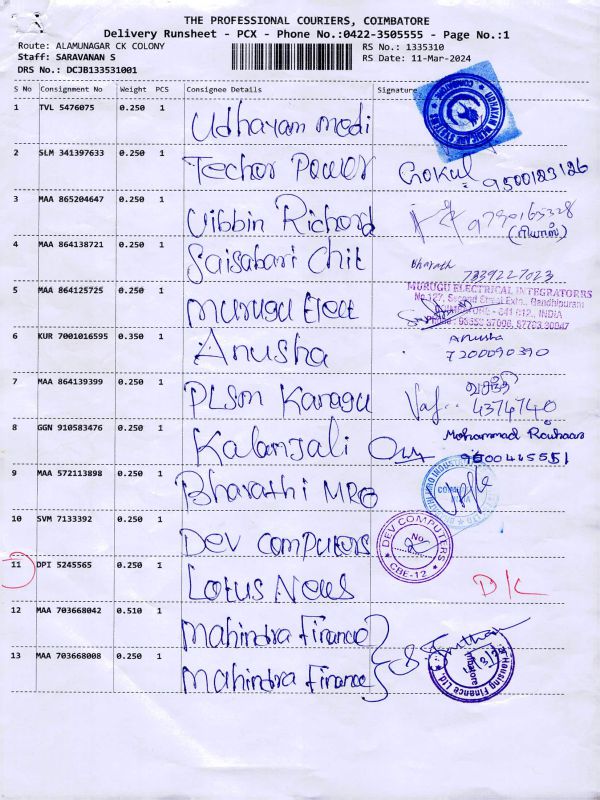 THE PROFESSIONAL COURIERS, COIMBATORE
Delivery Runsheet - PCX - Phone No.:0422-3505555 - Page No.:1
Route: ALAMUNAGAR CK COLONY
RS No.: 1335310
Staff: SARAVANAN S
RS Date: 11-Mar-2024
DRS No.: DCJB133531001
S No Consignment No Weight PCS Consignee Details Signature
1 TVL 5476075 0.250 1 Udhayam modi
2 SLM 341397633 0.250 1 Techor Power Gokul 9500123126
3 MAA 865204647 0.250 1 Vibbin Richord 9790165328
4 MAA 864138721 0.250 1 Saisabari Chit Bharath
7339227023
5 MAA 864125725 0.250 1 Murugu Elect MURUGU ELECTRICAL INTEGRATORRS
No.127, Second Street Extn., Gandhipuram
COIMBATORE - 641 012., INDIA
6 KUR 7001016595 0.350 1 Anusha Anusha
7200090390
7 MAA 864139399 0.250 1 PLSM Karagu வசந்தி
4374740
8 GGN 910583476 0.250 1 Kalanjali Mohammad
9600445551
9 MAA 572113898 0.250 1 Bharathi MRO
10 SVM 7133392 0.250 1 Dev computers DEV COMPUTERS
No
CBE-12
11 DPI 5245565 0.250 1 Lotus News D/L
12 MAA 703668042 0.510 1 Mahindra Finance
13 MAA 703668008 0.250 1 Mahindra Finance Housing Finance Ltd.